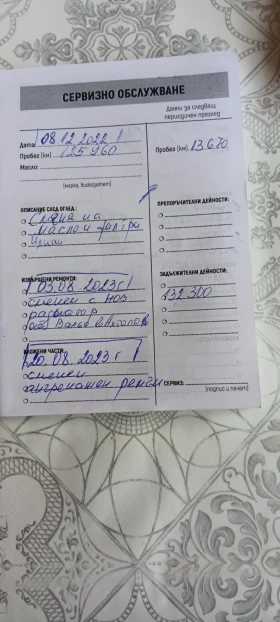 СЕРВИЗНО ОБСЛУЖВАНЕ
Данни за следващ
периодичен преглед
Дата: 08.12.2022 г
Пробег (км) 125960
Пробег (км) 13.670
Масло:
(марка, вискозитет)
ОПИСАНИЕ СЛЕД ОГЛЕД:
Смяна на
масло и филтри
ПРЕПОРЪЧИТЕЛНИ ДЕЙНОСТИ:
ИЗВЪРШЕНИ РЕМОНТИ:
03.08.2023 г
сменен с нов
ЗАДЪЛЖИТЕЛНИ ДЕЙНОСТИ:
132 300
ВЛОЖЕНИ ЧАСТИ:
20.08.2023 г
сменен
ангренажен ремък
СЕРВИЗ:
(подпис и печат)